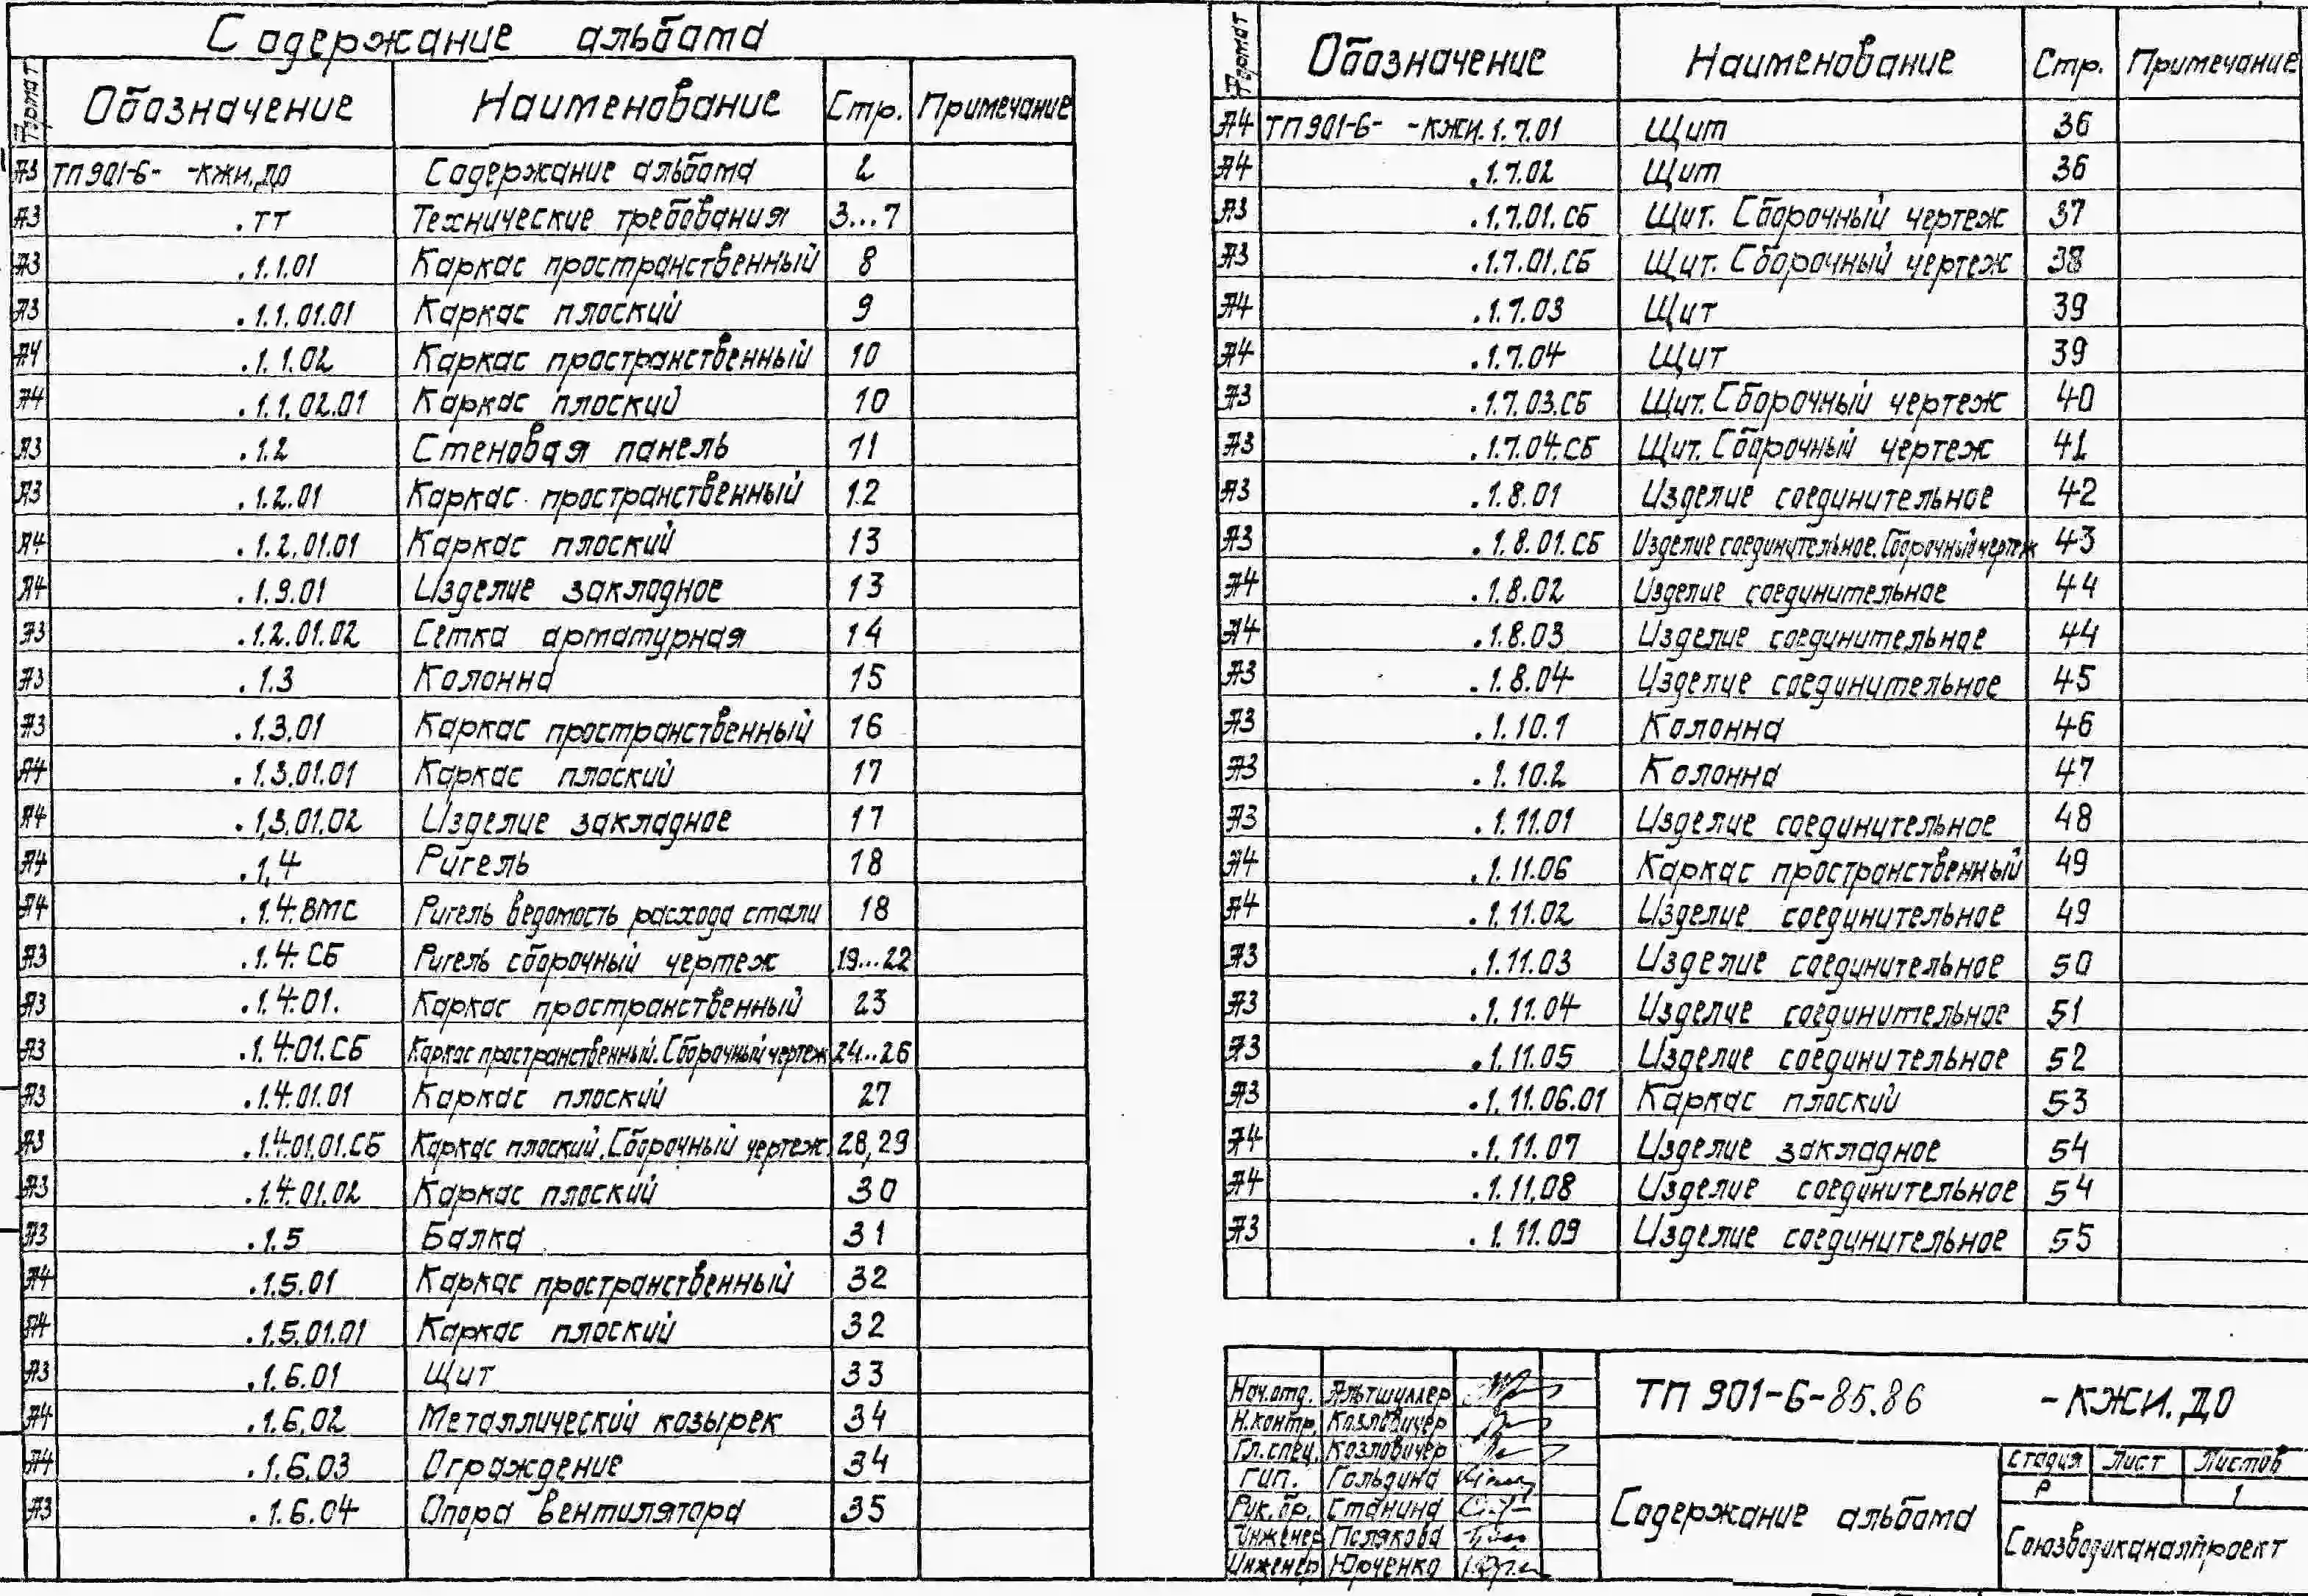 Содержание альбома
Формат Обозначение Наименование Стр. Примечание
А3 ТП 901-6- -КЖИ.ДО Содержание альбома 2
А3 .ТТ Технические требования 3...7
А3 .1.1.01 Каркас пространственный 8
А3 .1.1.01.01 Каркас плоский 9
А4 .1.1.02 Каркас пространственный 10
А4 .1.1.02.01 Каркас плоский 10
А3 .1.2 Стеновая панель 11
А3 .1.2.01 Каркас пространственный 12
А4 .1.2.01.01 Каркас плоский 13
А4 .1.9.01 Изделие закладное 13
А3 .1.2.01.02 Сетка арматурная 14
А3 .1.3 Колонна 15
А3 .1.3.01 Каркас пространственный 16
А4 .1.3.01.01 Каркас плоский 17
А4 .1.3.01.02 Изделие закладное 17
А4 .1.4 Ригель 18
А4 .1.4.ВМС Ригель ведомость расхода стали 18
А3 .1.4.СБ Ригель сборочный чертеж 19...22
А3 .1.4.01. Каркас пространственный 23
А3 .1.4.01.СБ Каркас пространственный. Сборочный чертеж 24...26
А3 .1.4.01.01 Каркас плоский 27
А3 .1.4.01.01.СБ Каркас плоский. Сборочный чертеж. 28,29
А3 .1.4.01.02 Каркас плоский 30
А3 .1.5 Балка 31
А4 .1.5.01 Каркас пространственный 32
А4 .1.5.01.01 Каркас плоский 32
А3 .1.6.01 Щит 33
А4 .1.6.02 Металлический козырек 34
А4 .1.6.03 Ограждение 34
А3 .1.6.04 Опора вентилятора 35
Формат Обозначение Наименование Стр. Примечание
А4 ТП 901-6- -КЖИ.1.7.01 Щит 36
А4 .1.7.02 Щит 36
А3 .1.7.01.СБ Щит. Сборочный чертеж 37
А3 .1.7.01.СБ Щит. Сборочный чертеж 38
А4 .1.7.03 Щит 39
А4 .1.7.04 Щит 39
А3 .1.7.03.СБ Щит. Сборочный чертеж 40
А3 .1.7.04.СБ Щит. Сборочный чертеж 41
А3 .1.8.01 Изделие соединительное 42
А3 .1.8.01.СБ Изделие соединительное. Сборочный чертеж 43
А4 .1.8.02 Изделие соединительное 44
А4 .1.8.03 Изделие соединительное 44
А3 .1.8.04 Изделие соединительное 45
А3 .1.10.1 Колонна 46
А3 .1.10.2 Колонна 47
А3 .1.11.01 Изделие соединительное 48
А4 .1.11.06 Каркас пространственный 49
А4 .1.11.02 Изделие соединительное 49
А3 .1.11.03 Изделие соединительное 50
А3 .1.11.04 Изделие соединительное 51
А3 .1.11.05 Изделие соединительное 52
А3 .1.11.06.01 Каркас плоский 53
А4 .1.11.07 Изделие закладное 54
А4 .1.11.08 Изделие соединительное 54
А3 .1.11.09 Изделие соединительное 55
Нач.отд. Альтшуллер
Н.контр. Козловичер
Гл.спец. Козловичер
ГИП. Гольдина
Рук.бр. Станина
Инженер Полякова
Инженер Юрченко
ТП 901-6-85.86 -КЖИ.ДО
Содержание альбома
Стадия Лист Листов
Р 1
Союзводоканалпроект